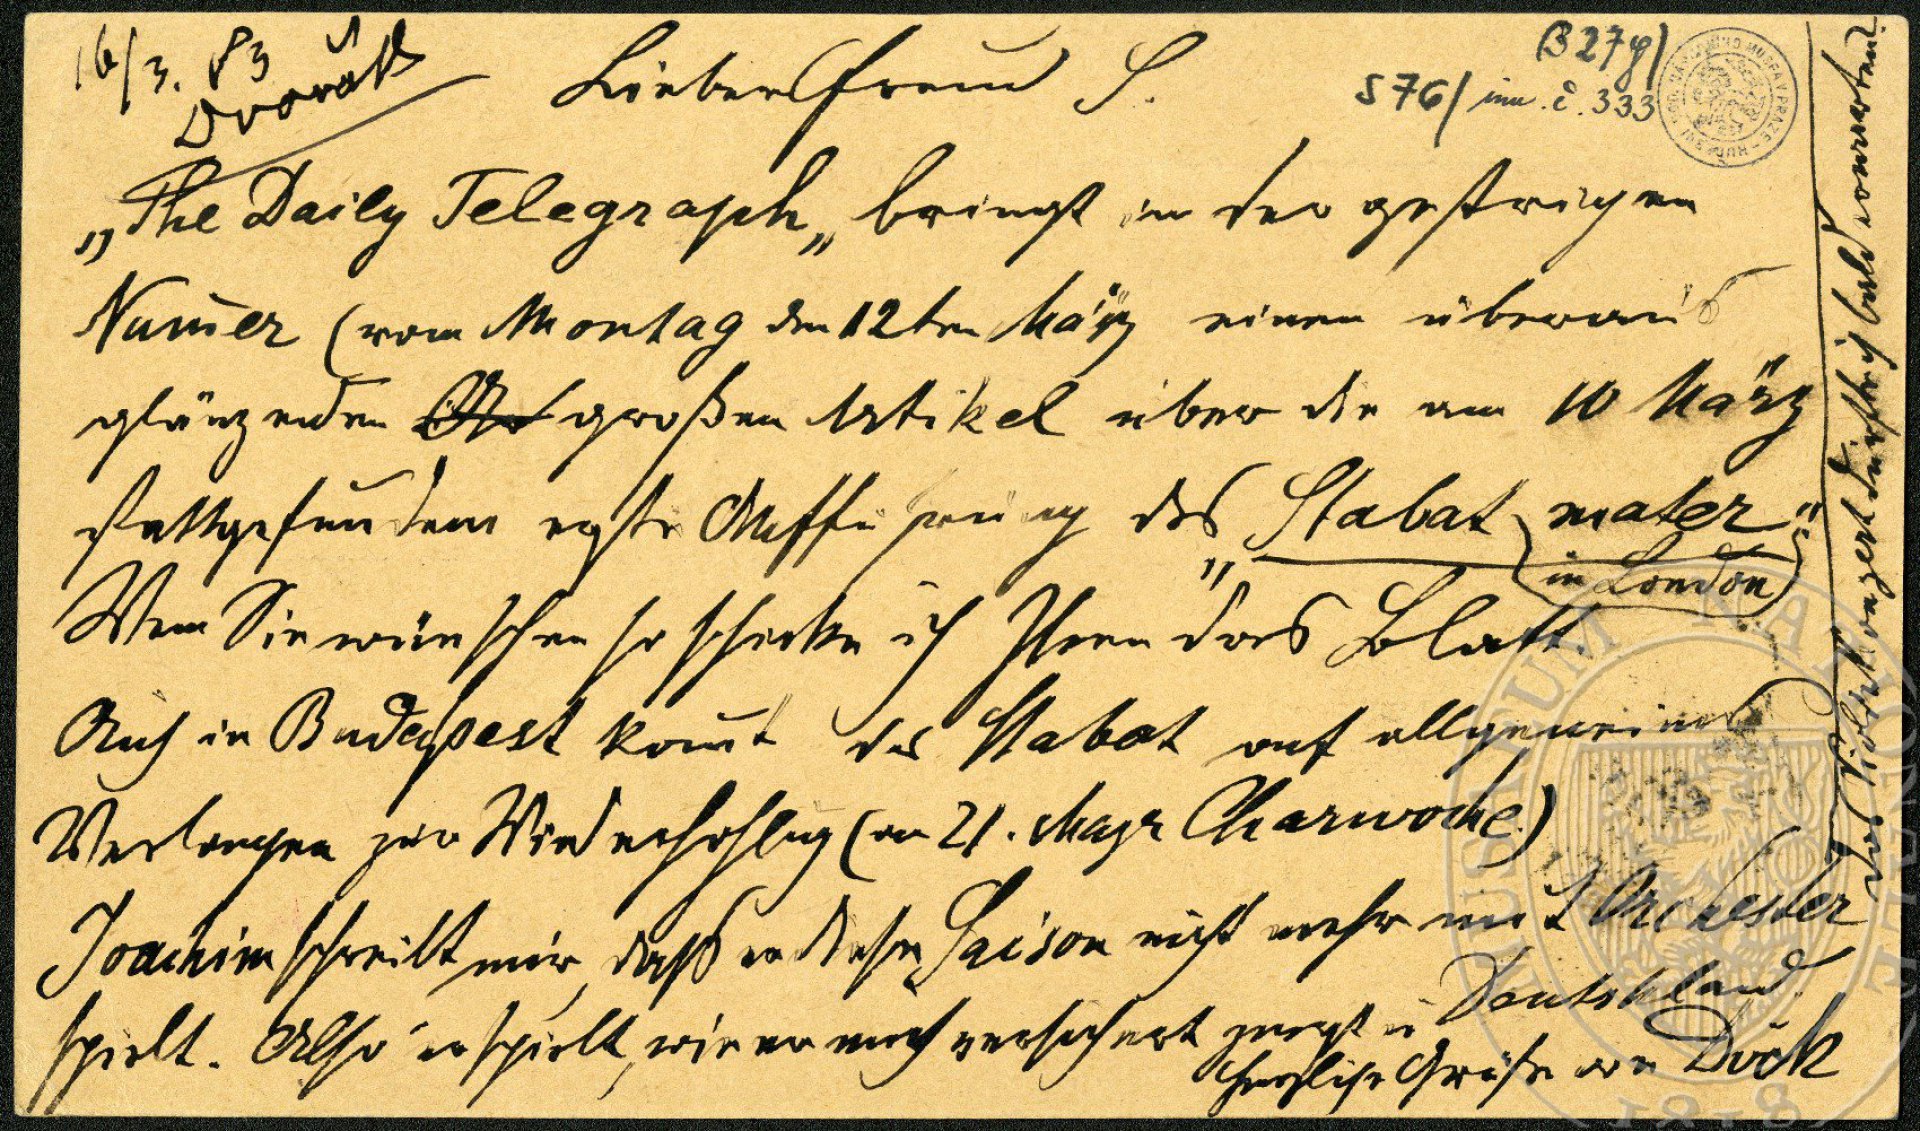 16/3. 83
Dvořák
Lieber Freund S.
B 27g)
S 76/ inv. č. 333
„The Daily Telegraph„ bringt in der gestrigen
Num̄er (vom Montag den 12ten März einen überaus
glänzenden großen Artikel über die am 10 März
stattgefundene erste Aufführung des „Stabat mater“
(in London)
Wenn Sie wünschen so schicke ich Ihnen das Blatt.
Auch in Budapest kom̄t das Stabat auf allgemeines
Verlangen zur Wiederhohlung (am 21. März Charwoche)
Joachim schreibt mir, daß er diese Saison nicht mehr mit Orchester
spielt. Also er spielt, wie er mich versichert zuerst in Deutschland.
Herzliche Grüße von Dvǒk
Das Violinkonzert dürfte ich bald erwarten!
MUSAEUM NATIONALE
1818